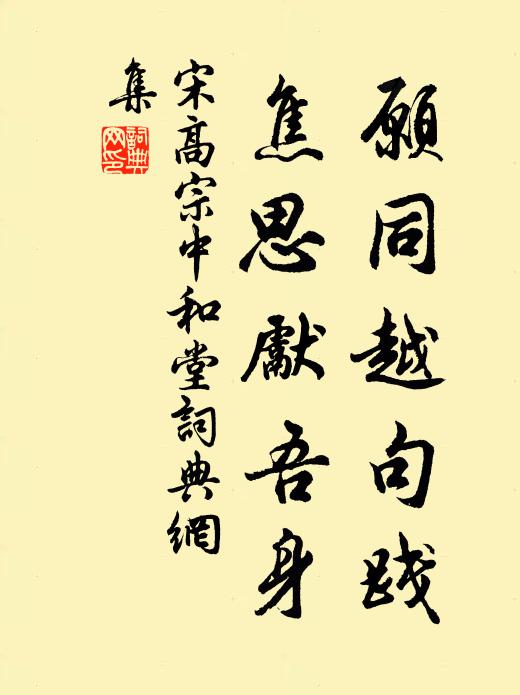 願同越句踐
焦思獻吾身
宋高宗中和堂詞典網
集
詞典網印